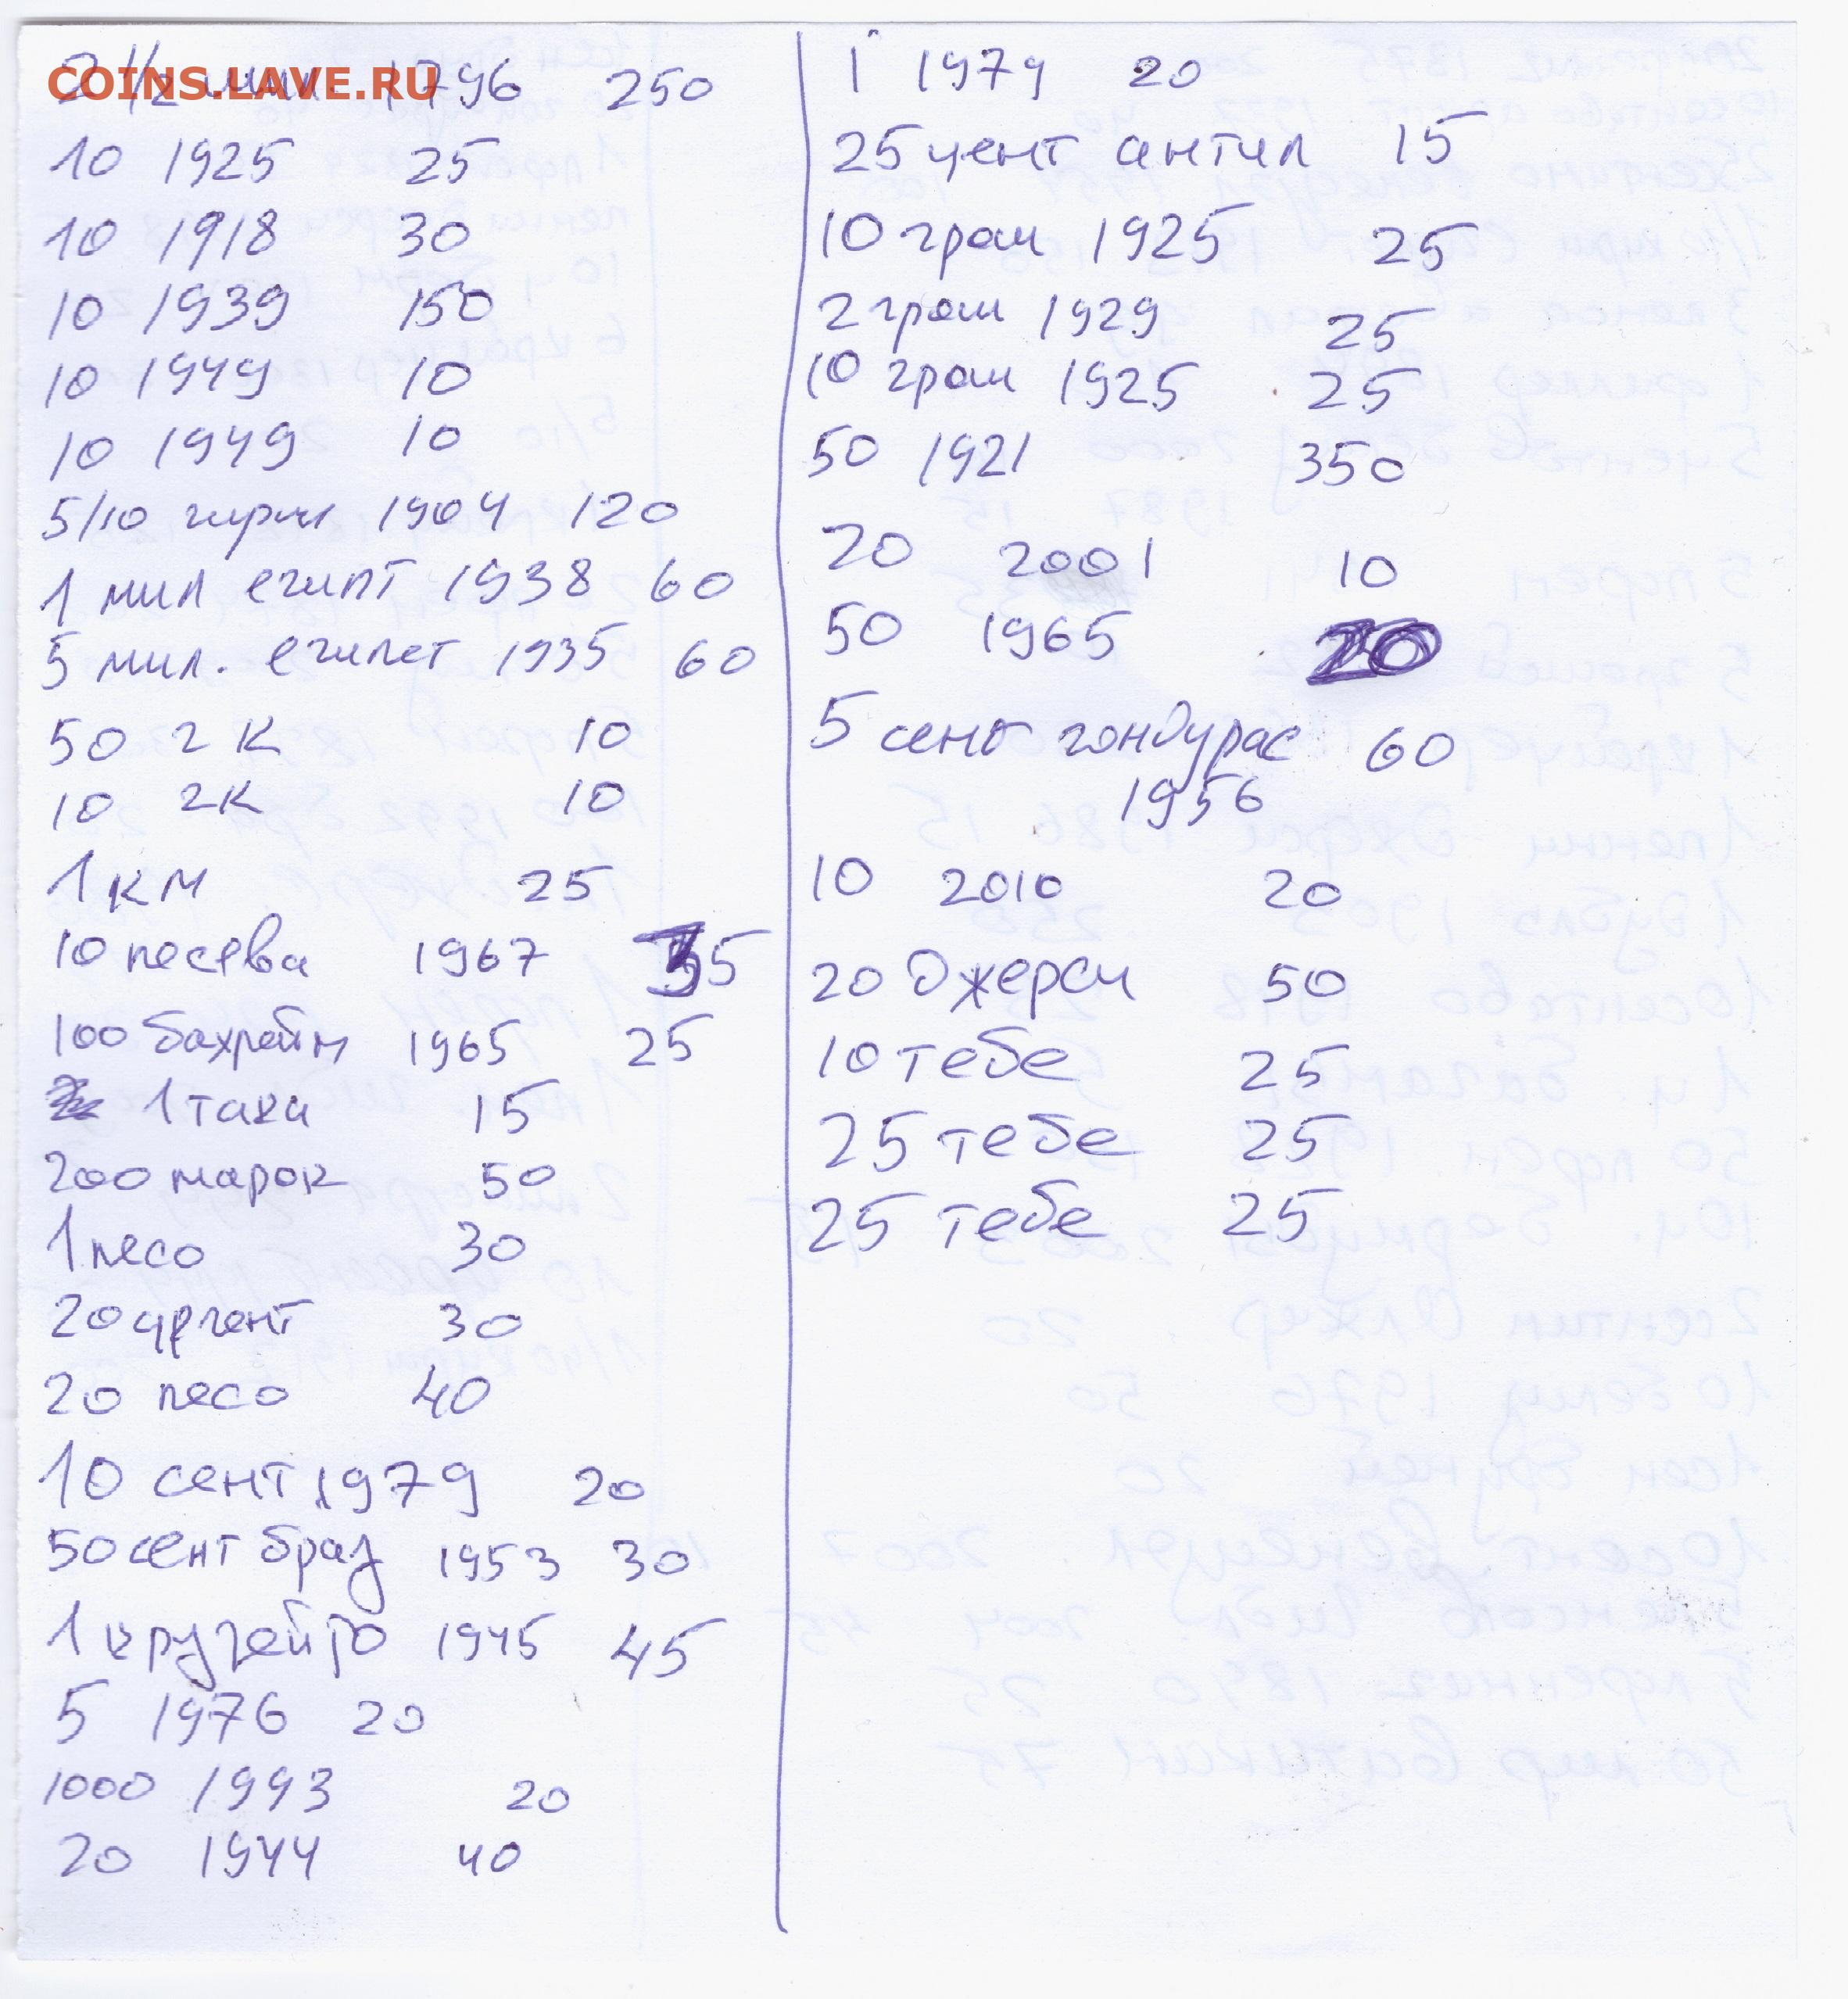 COINS.LAVE.RU
2 1/2 шил. 1796 250
10 1925 25
10 1918 30
10 1939 150
10 1949 10
10 1949 10
5/10 гирш 1904 120
1 мил египт 1938 60
5 мил. египет 1935 60
50 2К 10
10 2К 10
1 КМ 25
10 песева 1967 35
100 бахрейн 1965 25
1 така 15
200 марок 50
1 песо 30
20 аргент 30
20 песо 40
10 сент 1979 20
50 сент браз 1953 30
1 крузейро 1945 45
5 1976 20
1000 1993 20
20 1944 40
1 1979 20
25 цент антил 15
10 грош 1925 25
2 грош 1929 25
10 грош 1925 25
50 1921 350
20 2001 10
50 1965 20
5 сент гондурас 60
1956
10 2010 20
20 Джерси 50
10 тебе 25
25 тебе 25
25 тебе 25